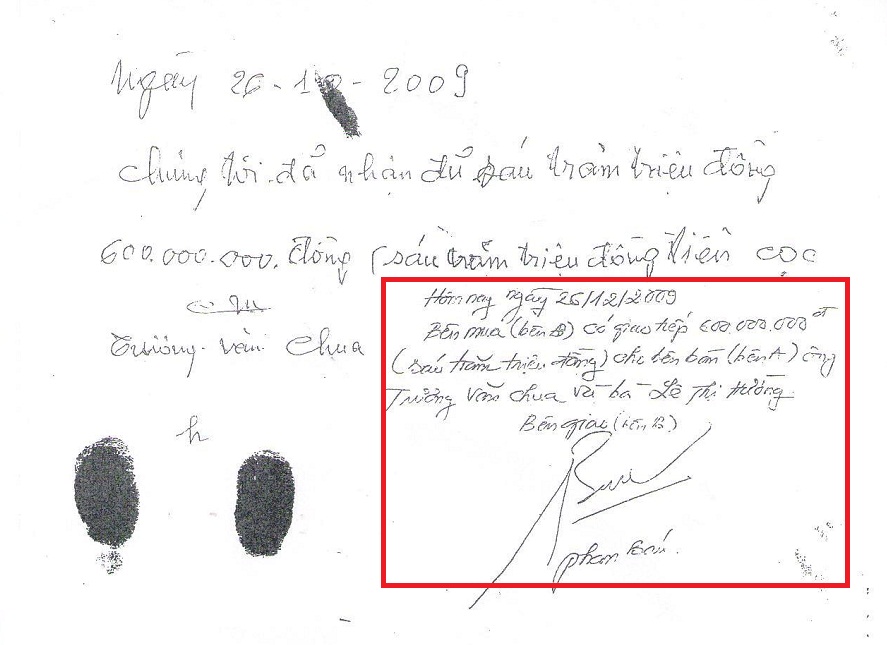 Ngày 26-10-2009
chúng tôi đã nhận đủ sáu trăm triệu đồng
600.000.000. đồng (sáu trăm triệu đồng tiền cọc
Trương văn Chua
h
Hôm nay ngày 26/12/2009
Bên mua (bên B) có giao tiếp 600.000.000đ
(sáu trăm triệu đồng) cho bên bán (bên A) ông
Trương Văn Chua và bà Lê Thị Hường
Bên giao (bên B)
phan